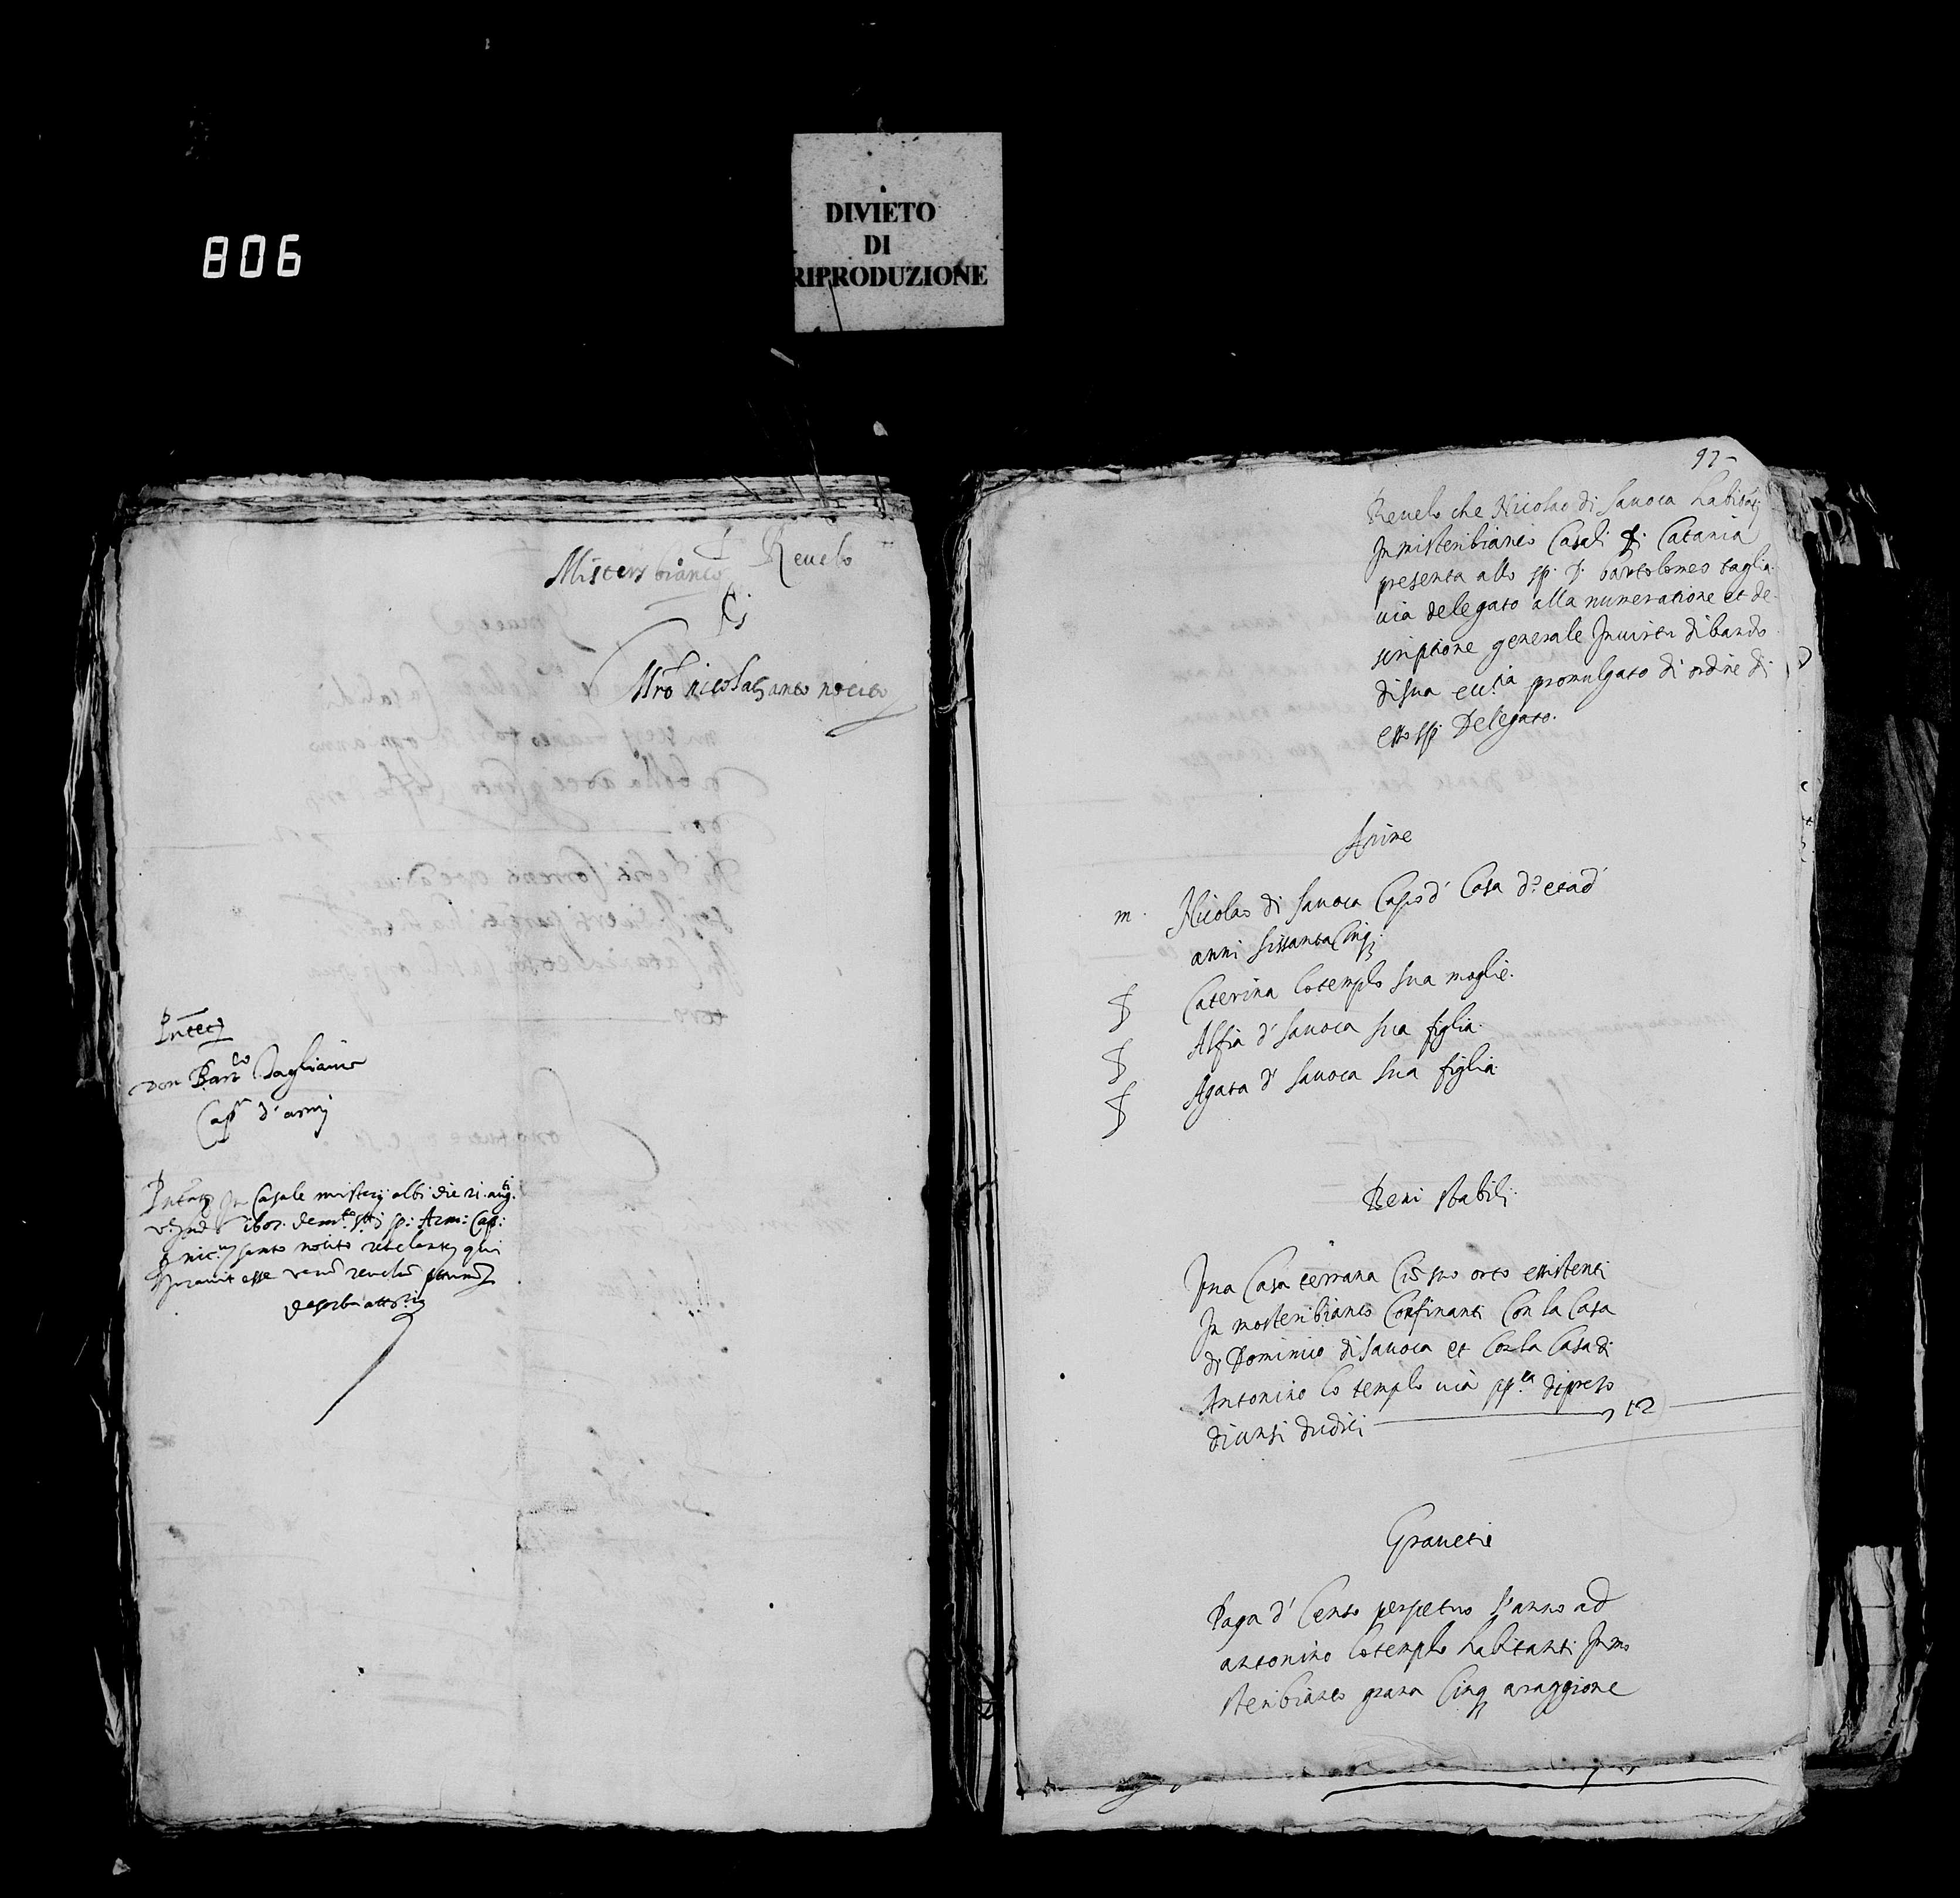 806
DIVIETO
DI
RIPRODUZIONE
Misterj bianco Revelo
di
Mro nicola Santo nocito
Don Bartco Tagliavia
Capn d'armi
In Casale misterj albi die 21 augti
santo nocito revelante qui
juravit esse revelu
97
Revelo che Nicolao di Savoca habitatj
In misteribianco Casali di Catania
presenta allo sp. D. bartolomeo taglia
via delegato alla numeratione et de
scriptione generale In virtu di bando
di sua ecc.tia promulgato di ordine di
esso sp. Delegato.
Anime
m. Nicolao di Savoca Capo d' Casa d'etad'
anni sissanta Cinq
f Caterina lo templo sua moglie.
f Alfia d' Savoca sua figlia.
f Agata d' Savoca sua figlia
Beni stabili
Una Casa terrana Cō suo orto existenti
In mosteribianco Confinanti Con la Casa
di Dominico di Savoca et Con la Casa di
Antonino lo templo via pp.ca di prezo
di unzi dudici 12
Gravezie
Paga d' Censo perpetuo l'anno ad
antonino lo templo habitanti In mo
steribianco grana Cinq a raggione